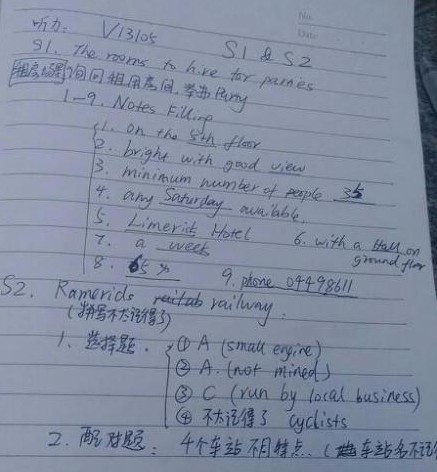 No.
Date
听力: V13105 S1 & S2
S1. The rooms to hire for parties
询问租用房间,举办Party
1—9. Notes Filling
1. on the 8th floor
2. bright with good view
3. minimum number of people 35
4. any Saturday available
5. Limerick Hotel 6. with a Hall on ground floor
7. a week
8. 9. phone 04498611
S2. Ramerids railway.
(拼写不太记得了)
1. 选择题. ① A (small engine)
② A. (not mined)
③ C (run by local business)
④ 不太记得了 cyclists
2. 配对题: 4个车站不同特点. (车站名不记